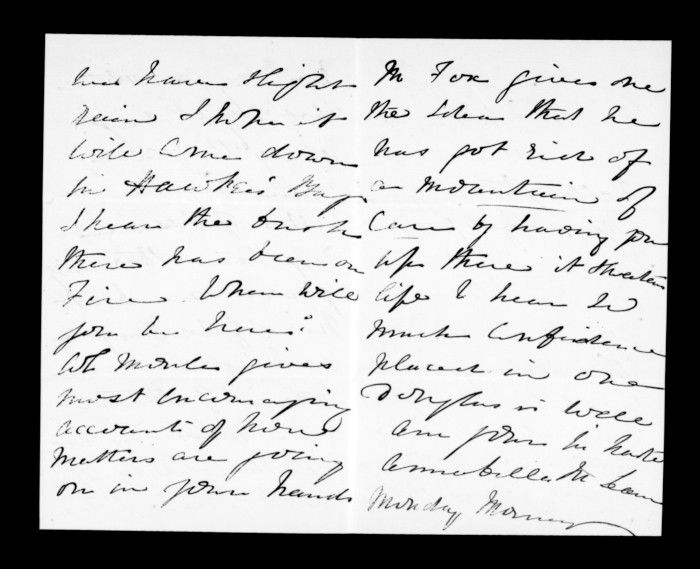 we have slight
rain I hope it
will come down
in Hawke's Bay
I hear the bush
there has been on
Fire. When will
you be here?
Col Moule gives
most encouraging
accounts of how
matters are going
on in your hands
Mr Fox gives me
the idea that he
has got rid of
a mountain of
Care by having you
up there it
life I hear so
much Confidence
placed in one
Douglas is well
am yours in haste
Annabella McLean
Monday Morning